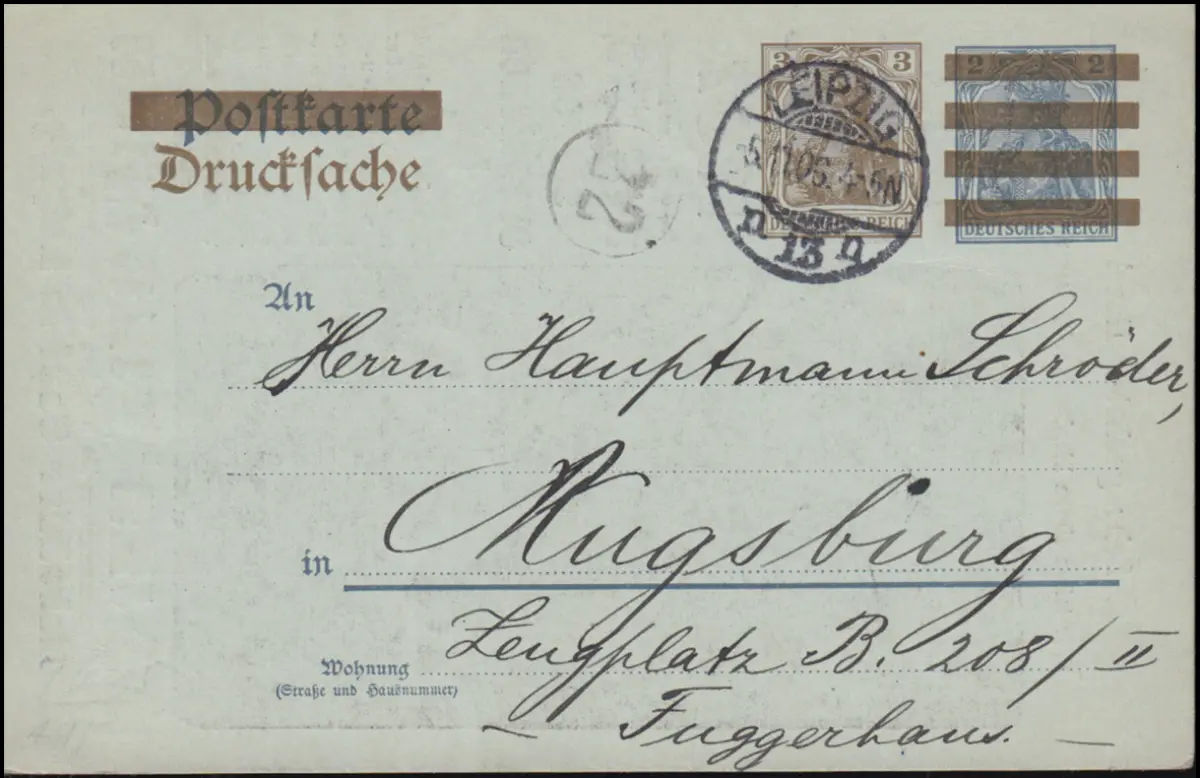 Postkarte
Drucksache
3 3
DEUTSCHES REICH
2 2
DEUTSCHES REICH
LEIPZIG
5.11.05. 4-5N
n 13 n
2
An
Herrn Hauptmann Schröder,
in Augsburg
Zeugplatz B. 208/II
Wohnung
(Straße und Hausnummer)
– Fuggerhaus. –